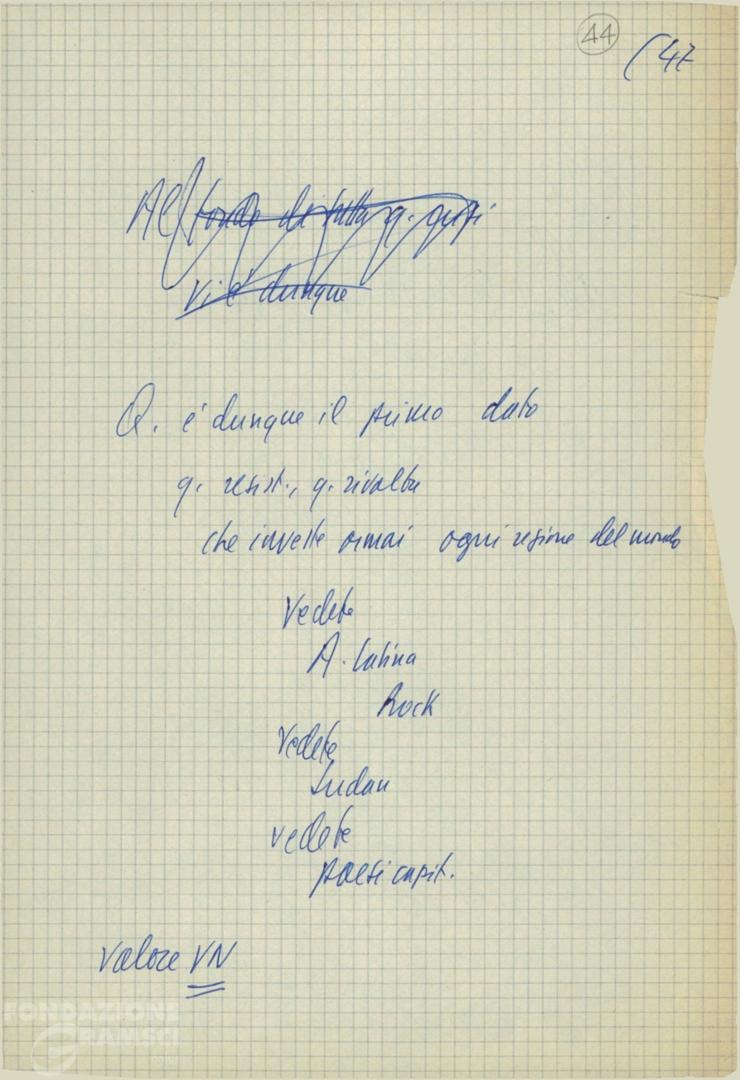 44
(47
Al fondo di tutta q. crisi
Vi è dunque
Q. è dunque il primo dato
q. resist., q. rivolta
che investe ormai ogni regione del mondo
Vedete
A. Latina
Rock
Vedete
Sudan
vedete
paesi capit.
Valore VN
FONDAZIONE
GRAMSCI